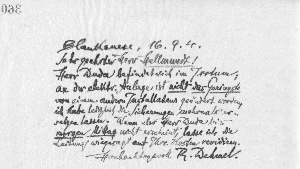 Blankenese, 16. 9. 
Sehr geehrter Herr Hellmund!
Herr Duda befindet sich im Irrtum,
an der elektr. Anlage ist nicht das Geringste
von einem andern Installateur geändert worden
ich habe lediglich die Sicherungen
lassen. Wenn also Herr Duda bis
morgen Mittag nicht erscheint, lasse ich die
Leitung auf Ihre Kosten revidiren.
Hochachtungsvoll R. Dehmel